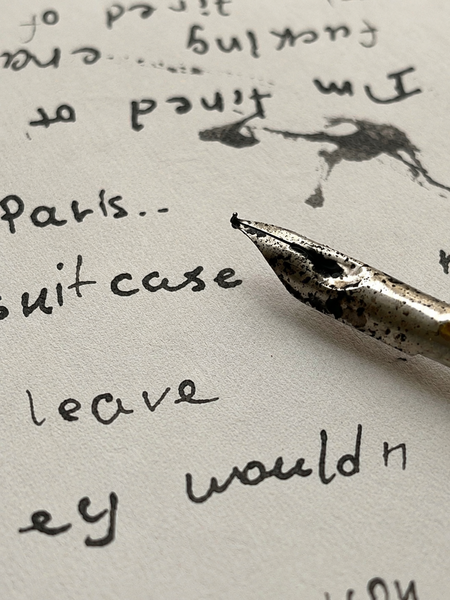 tired of
fucking
I'm tired of
Paris..
suitcase
leave
ey wouldn